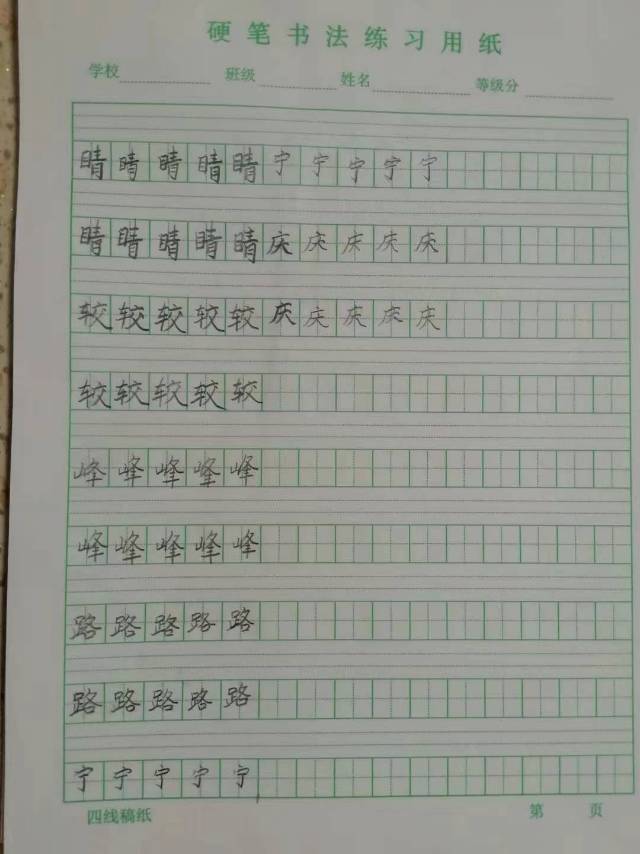 硬笔书法练习用纸
学校 班级 姓名 等级分
睛睛睛睛睛宁宁宁宁宁
睛睛睛睛睛庆庆庆庆庆
较较较较较庆庆庆庆庆
较较较较较
峰峰峰峰峰
峰峰峰峰峰
路路路路路
路路路路路
宁宁宁宁宁
四线稿纸 第 页